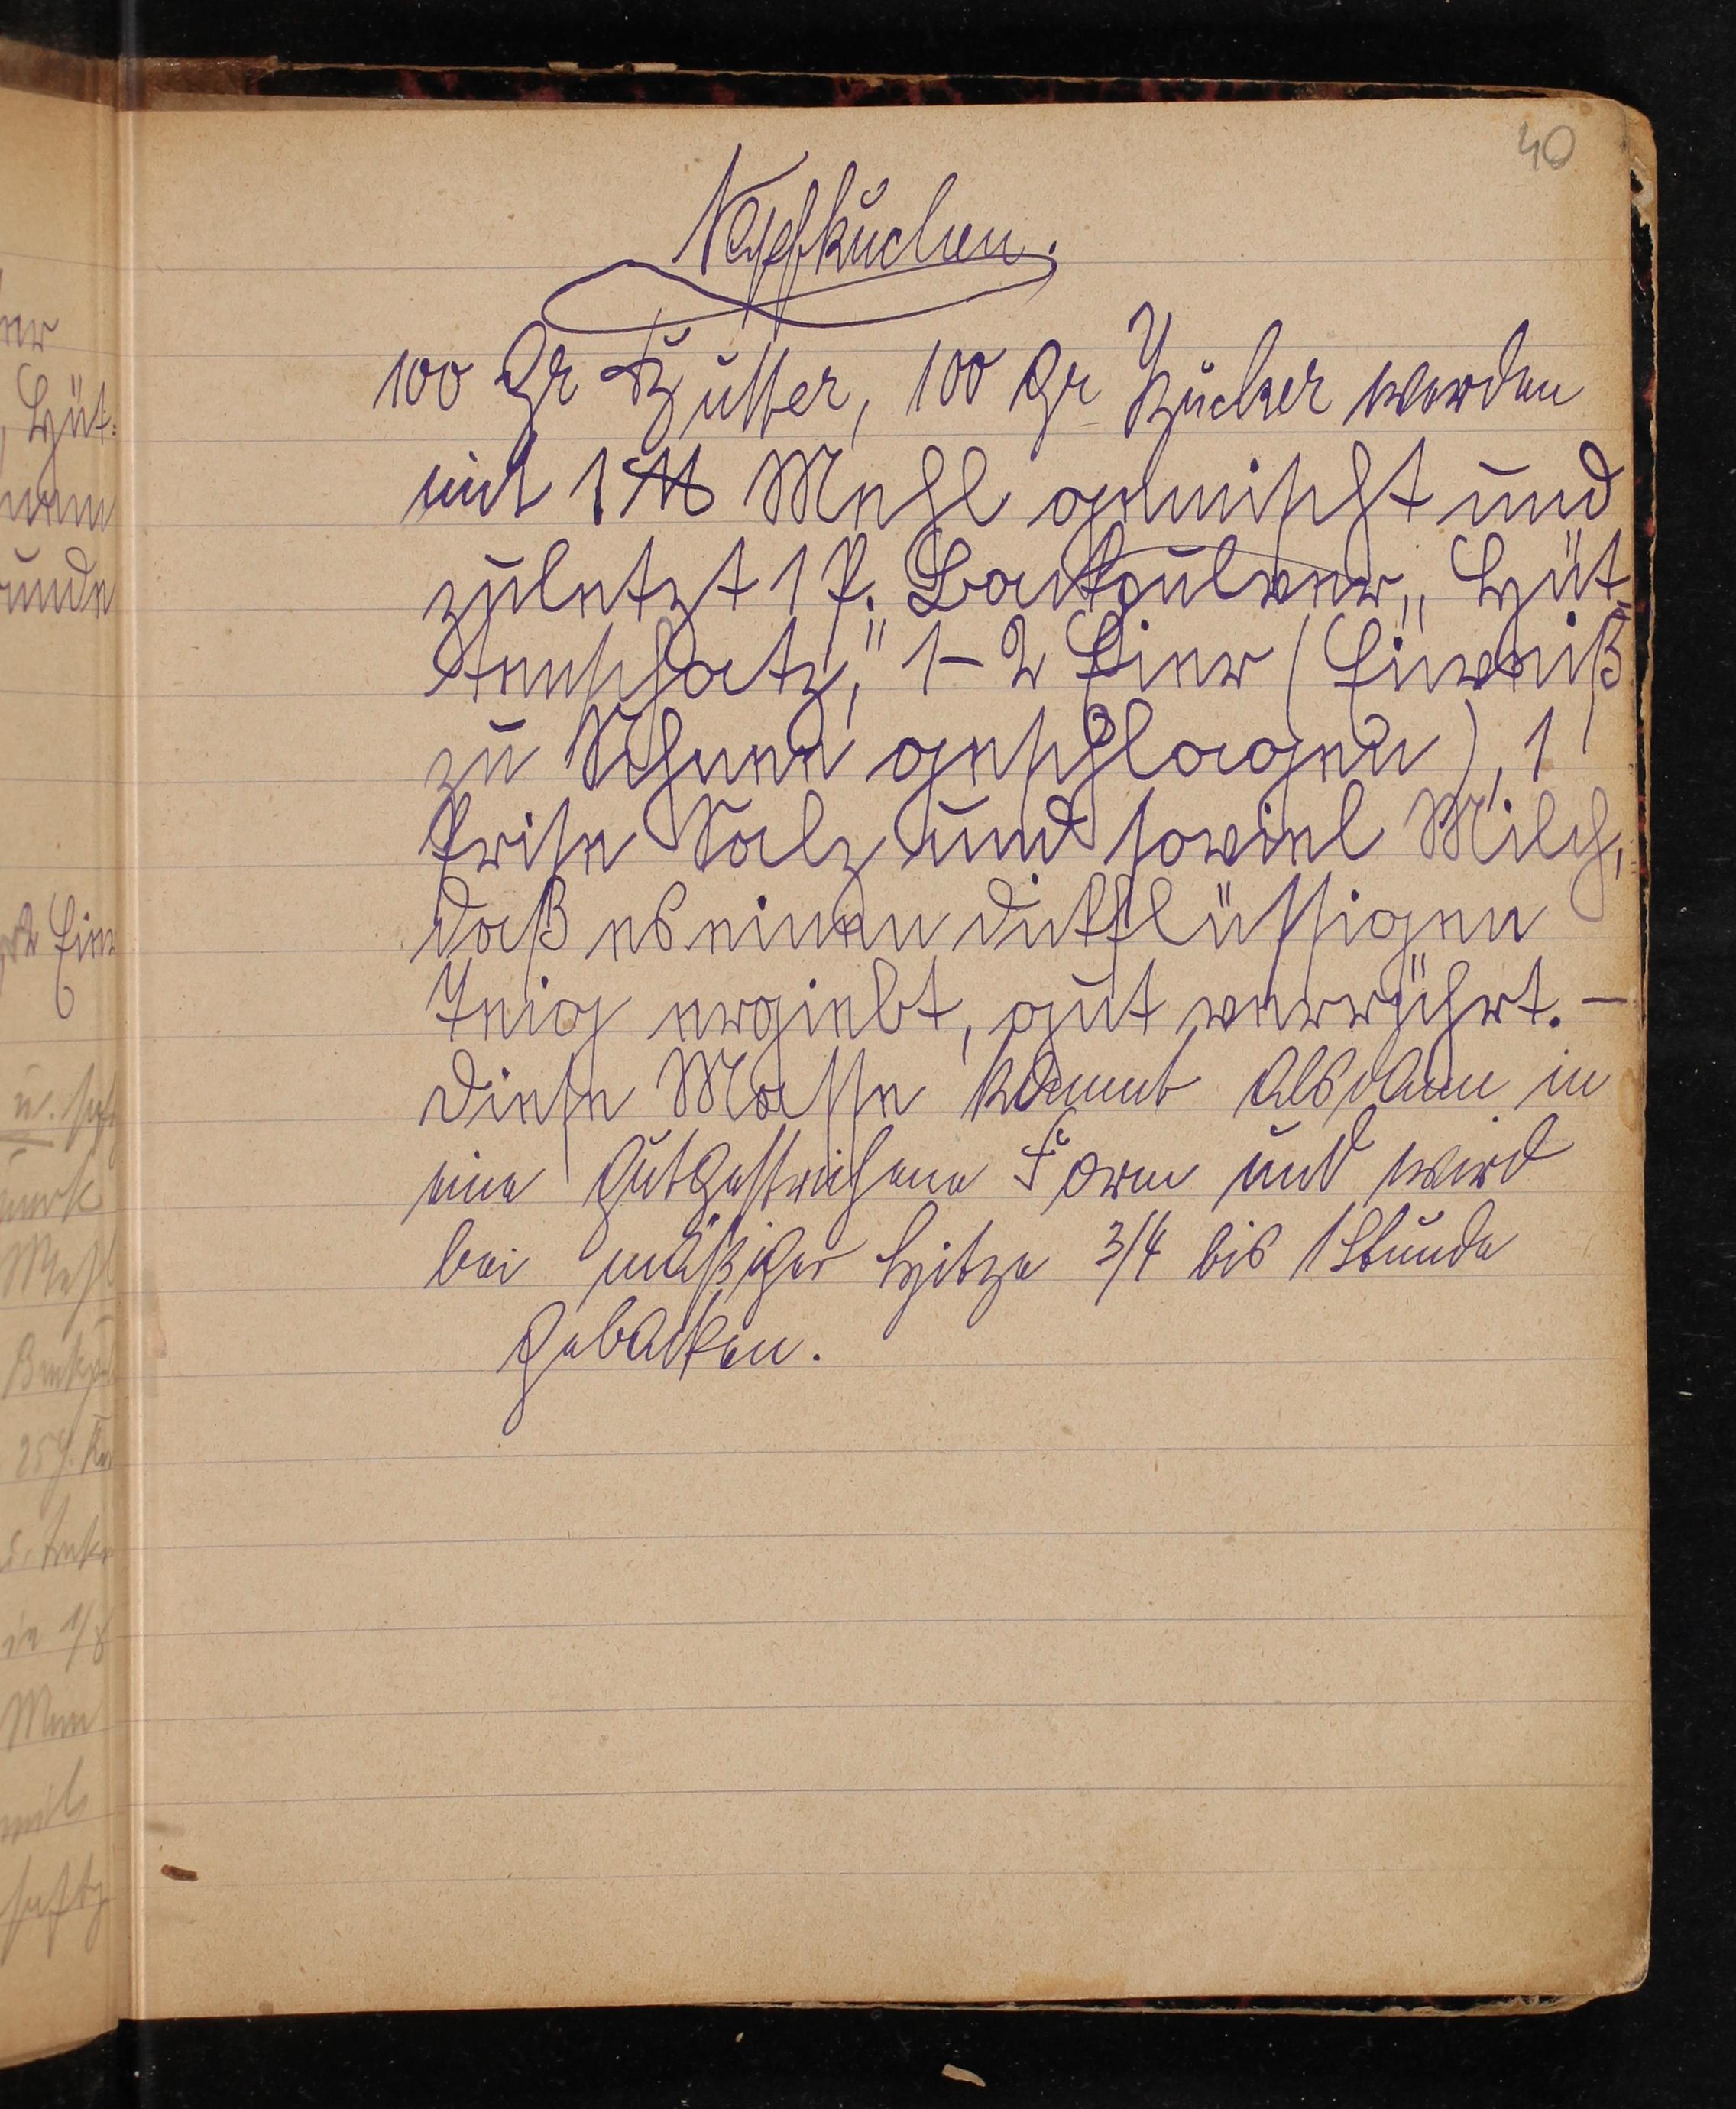 40
Napfkuchen.
100 Gr Butter, 100 Gr Zucker werden
mit 1 ℔ Mehl gemischt und
zuletzt 1 P. Backpulver „Hüt-
tenschatz", 1-2 Eier (Eiweiß
zu Schnee geschlagen), 1
Prise Salz und soviel Milch,
daß es einen dickflüssigen
Teig ergiebt, gut verrührt. —
Diese Masse kommt alsdann in
eine gutgestrichene Form und wird
bei mäßiger Hitze 3/4 bis 1 Stunde
gebacken.